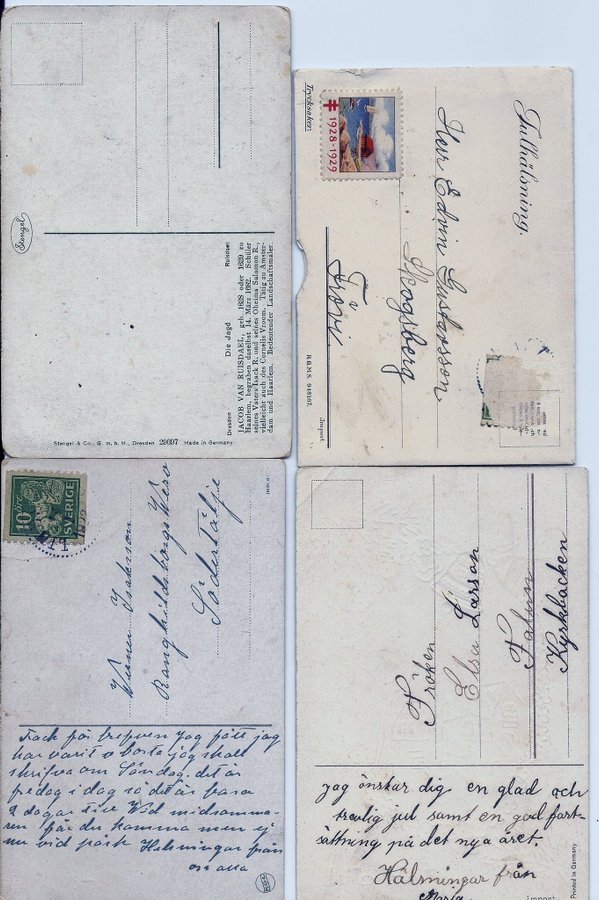 Stengel
Dresden Die Jagd Ruisdael
JACOB VAN RUISDAEL, geb. 1628 oder 1629 zu
Haarlem, begraben daselbst 14. März 1682. Schüler
seines Vaters Isack R. und seines Oheims Salomon R.,
vielleicht auch des Cornelis Vroom. Tätig zu Amster-
dam und Haarlem. Bedeutender Landschaftsmaler.
Stengel & Co., G. m. b. H., Dresden 29697 Made in Germany
Trycksaken.
1928-1929
Julhälsning
Herr Edvin Gustavsson
Skogsberg
Frövi
Import.
10 öre
SVERIGE
Verner Isaksson
Ranghildsborgs
Södertälje
Tack för brefven jag fått jag
har varit borta jag skall
skrifva om Söndag. det är
fredag i dag så det är bara
2 dagar till Vid midsomma-
ren får du komma men ej
nu vid påsk Helsningar från
oss alla
Fröken
Elsa Larson
Falun
Kyrkbacken
Jag önskar dig en glad och
trevlig jul samt en god fort-
sättning på det nya året.
Hälsningar från
Maria
Import
Printed in Germany